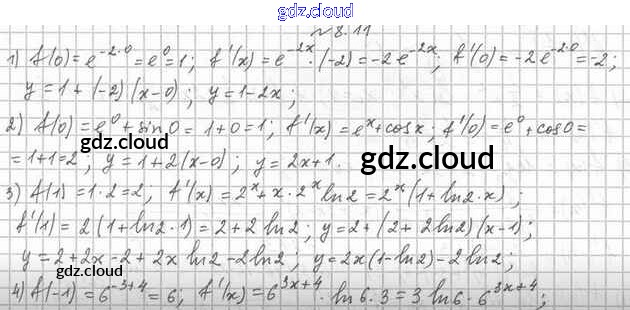 gdz.cloud
№8.11
1) f(0)=e^{-2·0}=e^0=1; f'(x)=e^{-2x}·(-2)=-2e^{-2x}; f'(0)=-2e^{-2·0}=-2;
y=1+(-2)(x-0); y=1-2x;
2) f(0)=e^0+sin0=1+0=1; f'(x)=e^x+cosx; f'(0)=e^0+cos0=
gdz.cloud
=1+1=2; y=1+2(x-0); y=2x+1.
gdz.cloud
3) f(1)=1·2=2, f'(x)=2^x+x·2^x ln2=2^x(1+ln2·x);
f'(1)=2(1+ln2·1)=2+2ln2; y=2+(2+2ln2)(x-1);
gdz.cloud
y=2+2x-2+2x ln2-2ln2; y=2x(1-ln2)-2ln2;
gdz.cloud
4) f(-1)=6^{-3+4}=6; f'(x)=6^{3x+4}·ln6·3=3ln6·6^{3x+4};
gdz.cloud